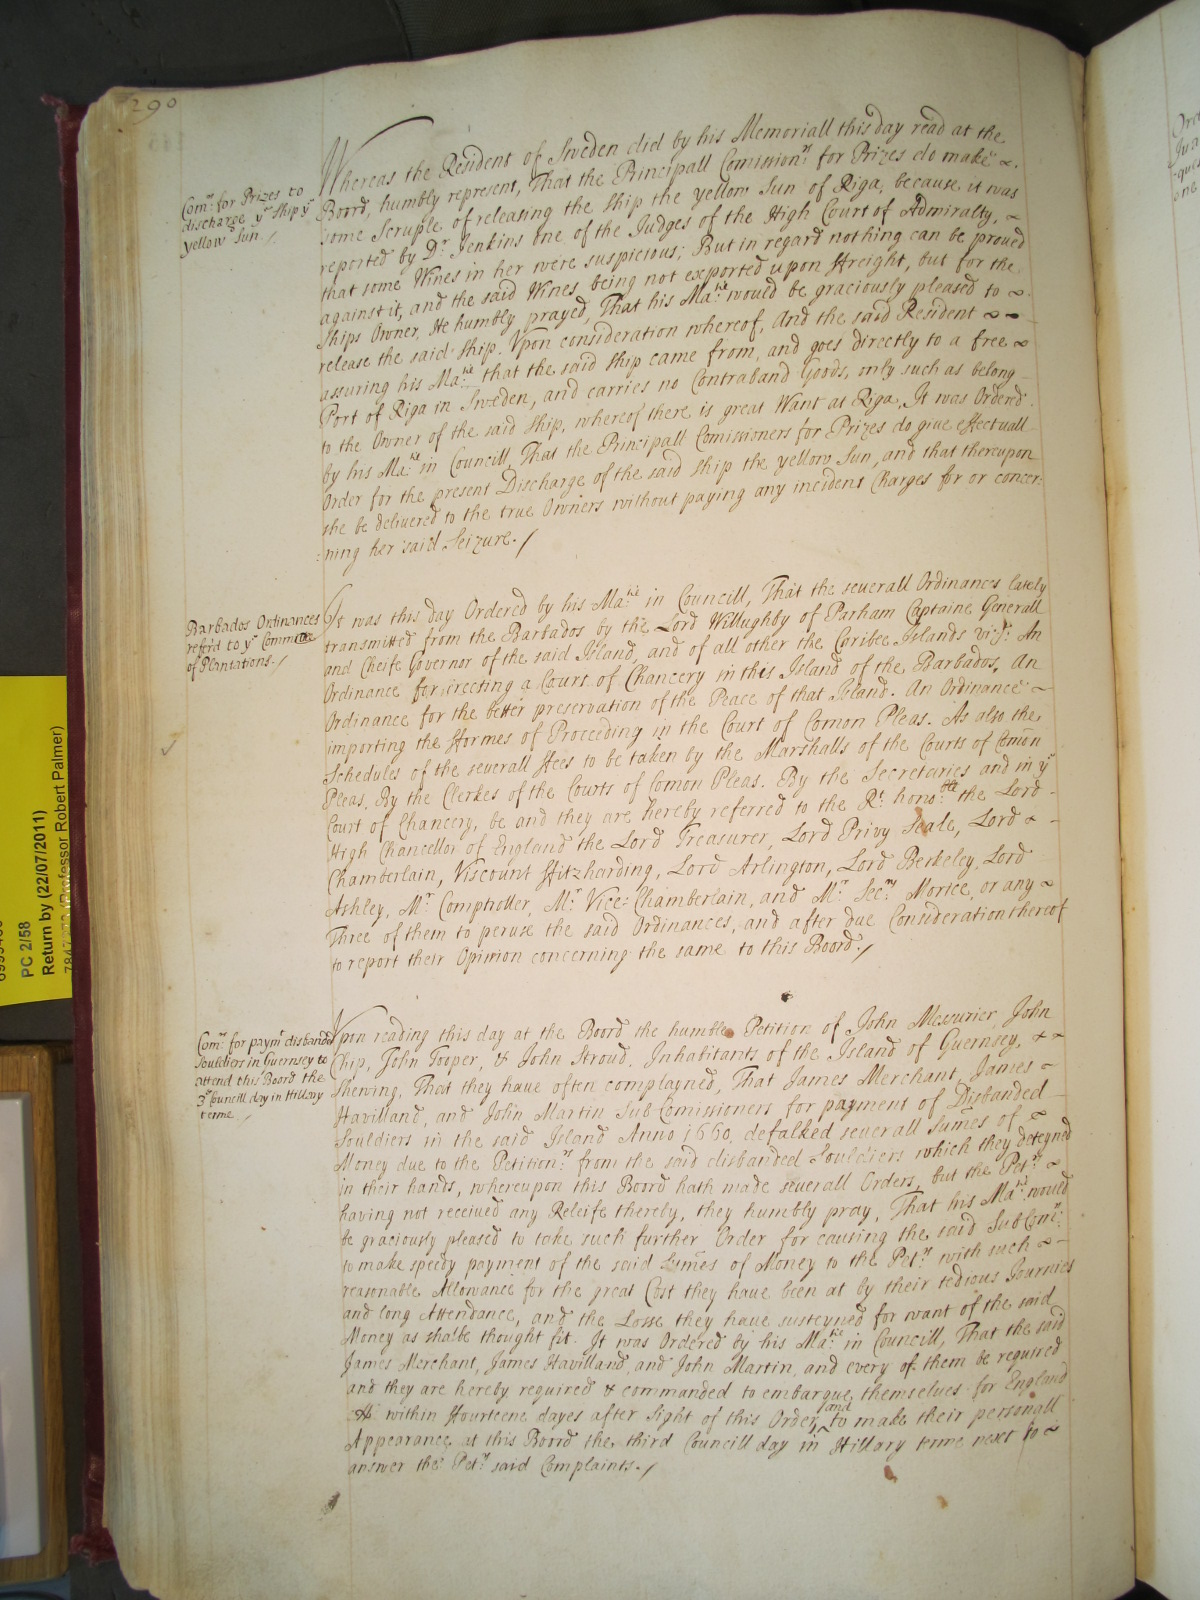 290
Com:rs for Prizes to
discharge ye Ship ye
yellow Sun./
Whereas the Resident of Sweden did by his Memoriall this day read at the
Board, humbly represent, That the Principall Comission:rs for Prizes do make
some Scruple of releasing the Ship the yellow Sun of Riga, because it was
reported by Dr. Jenkins one of the Judges of the High Court of Admiralty,
that some Wines in her were suspicious; But in regard nothing can be proued
against it, and the said Wines being not exported upon ffreight, but for the
Ships Owner, He humbly prayed, That his Ma:tie would be graciously pleased to
release the said Ship. Vpon consideration whereof, And the said Resident
assuring his Ma:tie that the said Ship came from, and goes directly to a free
Port of Riga in Sweden, and carries no Contraband Goods, only such as belong
to the Owner of the said Ship, whereof there is great Want at Riga, It was Orderd
by his Ma:tie in Councill, That the Principall Comissioners for Prizes do giue effectuall
Order for the present Discharge of the said Ship the yellow Sun, and that thereupon
she be deliuered to the true Owners without paying any incident Charges for or concer:
:ning her said Seizure./
Barbados Ordinances
referd to ye Committee
of Plantations./
It was this day Ordered by his Ma:tie in Councill, That the seuerall Ordinances lately
transmitted from the Barbados by the Lord Willughby of Parham Captaine Generall
and Cheife Gouernor of the said Island, and of all other the Caribee Islands viz:t An
Ordinance for irecting a Court of Chancery in this Island of the Barbados. An
Ordinance for the better preservation of the Peace of that Island. An Ordinance
importing the fformes of Proceeding in the Court of Comon Pleas. As also the
Schedules of the seuerall ffees to be taken by the Marshalls of the Courts of Comon
Pleas, By the Clerkes of the Courts of Comon Pleas. By the Secretaries and in ye
Court of Chancery, be and they are hereby referred to the Rt. hono:ble the Lord
High Chancellor of England the Lord Treasurer, Lord Privy Seale, Lord
Chamberlain, Viscount ffitzharding, Lord Arlington, Lord Berkeley, Lord
Ashley, Mr. Comptroller, Mr. Vice=Chamberlain, and Mr. Secry. Morice, or any
Three of them to peruse the said Ordinances, and after due Consideration thereof
to report their Opinion concerning the same to this Board./
Com:rs for paymt disbanded
Souldiers in Guernsey to
attend this Board the
3d Councill day in Hillary
terme./
Vpon reading this day at the Board the humble Petition of John Messurier, John
Chip, John Tooper, & John Stroud, Inhabitants of the Island of Guernsey, &
Shewing, That they have often complayned, That James Merchant, James
Havilland, and John Martin Sub Comissioners for payment of Disbanded
Souldiers in the said Island Anno 1660, defalked seuerall Sumes of
Money due to the Petition:rs from the said disbanded Souldiers which they deteyned
in their hands, whereupon this Board hath made seuerall Orders, but the Pet:rs
having not receiued any Releife thereby, they humbly pray, That his Ma:tie would
be graciously pleased to take such further Order for causing the said Sub Com:rs
to make speedy payment of the said Sumes of Money to the Pet:rs with such
reasonable Allowance for the great Cost they have been at by their tedious Journies
and long Attendance, and the Losse they have susteyned for want of the said
Money as shalbe thought fit. It was Ordered by his Ma:tie in Councill, That the said
James Merchant, James Havilland, and John Martin, and every of them be required
and they are hereby required & commanded to embarque themselues for England
within ffourteene dayes after Sight of this Order, and to make their personall
Appearance at this Board the third Councill day in Hillary terme next to
answer the Pet:rs said Complaints./
PC 2/58
Return by (22/07/2011)
(Professor Robert Palmer)